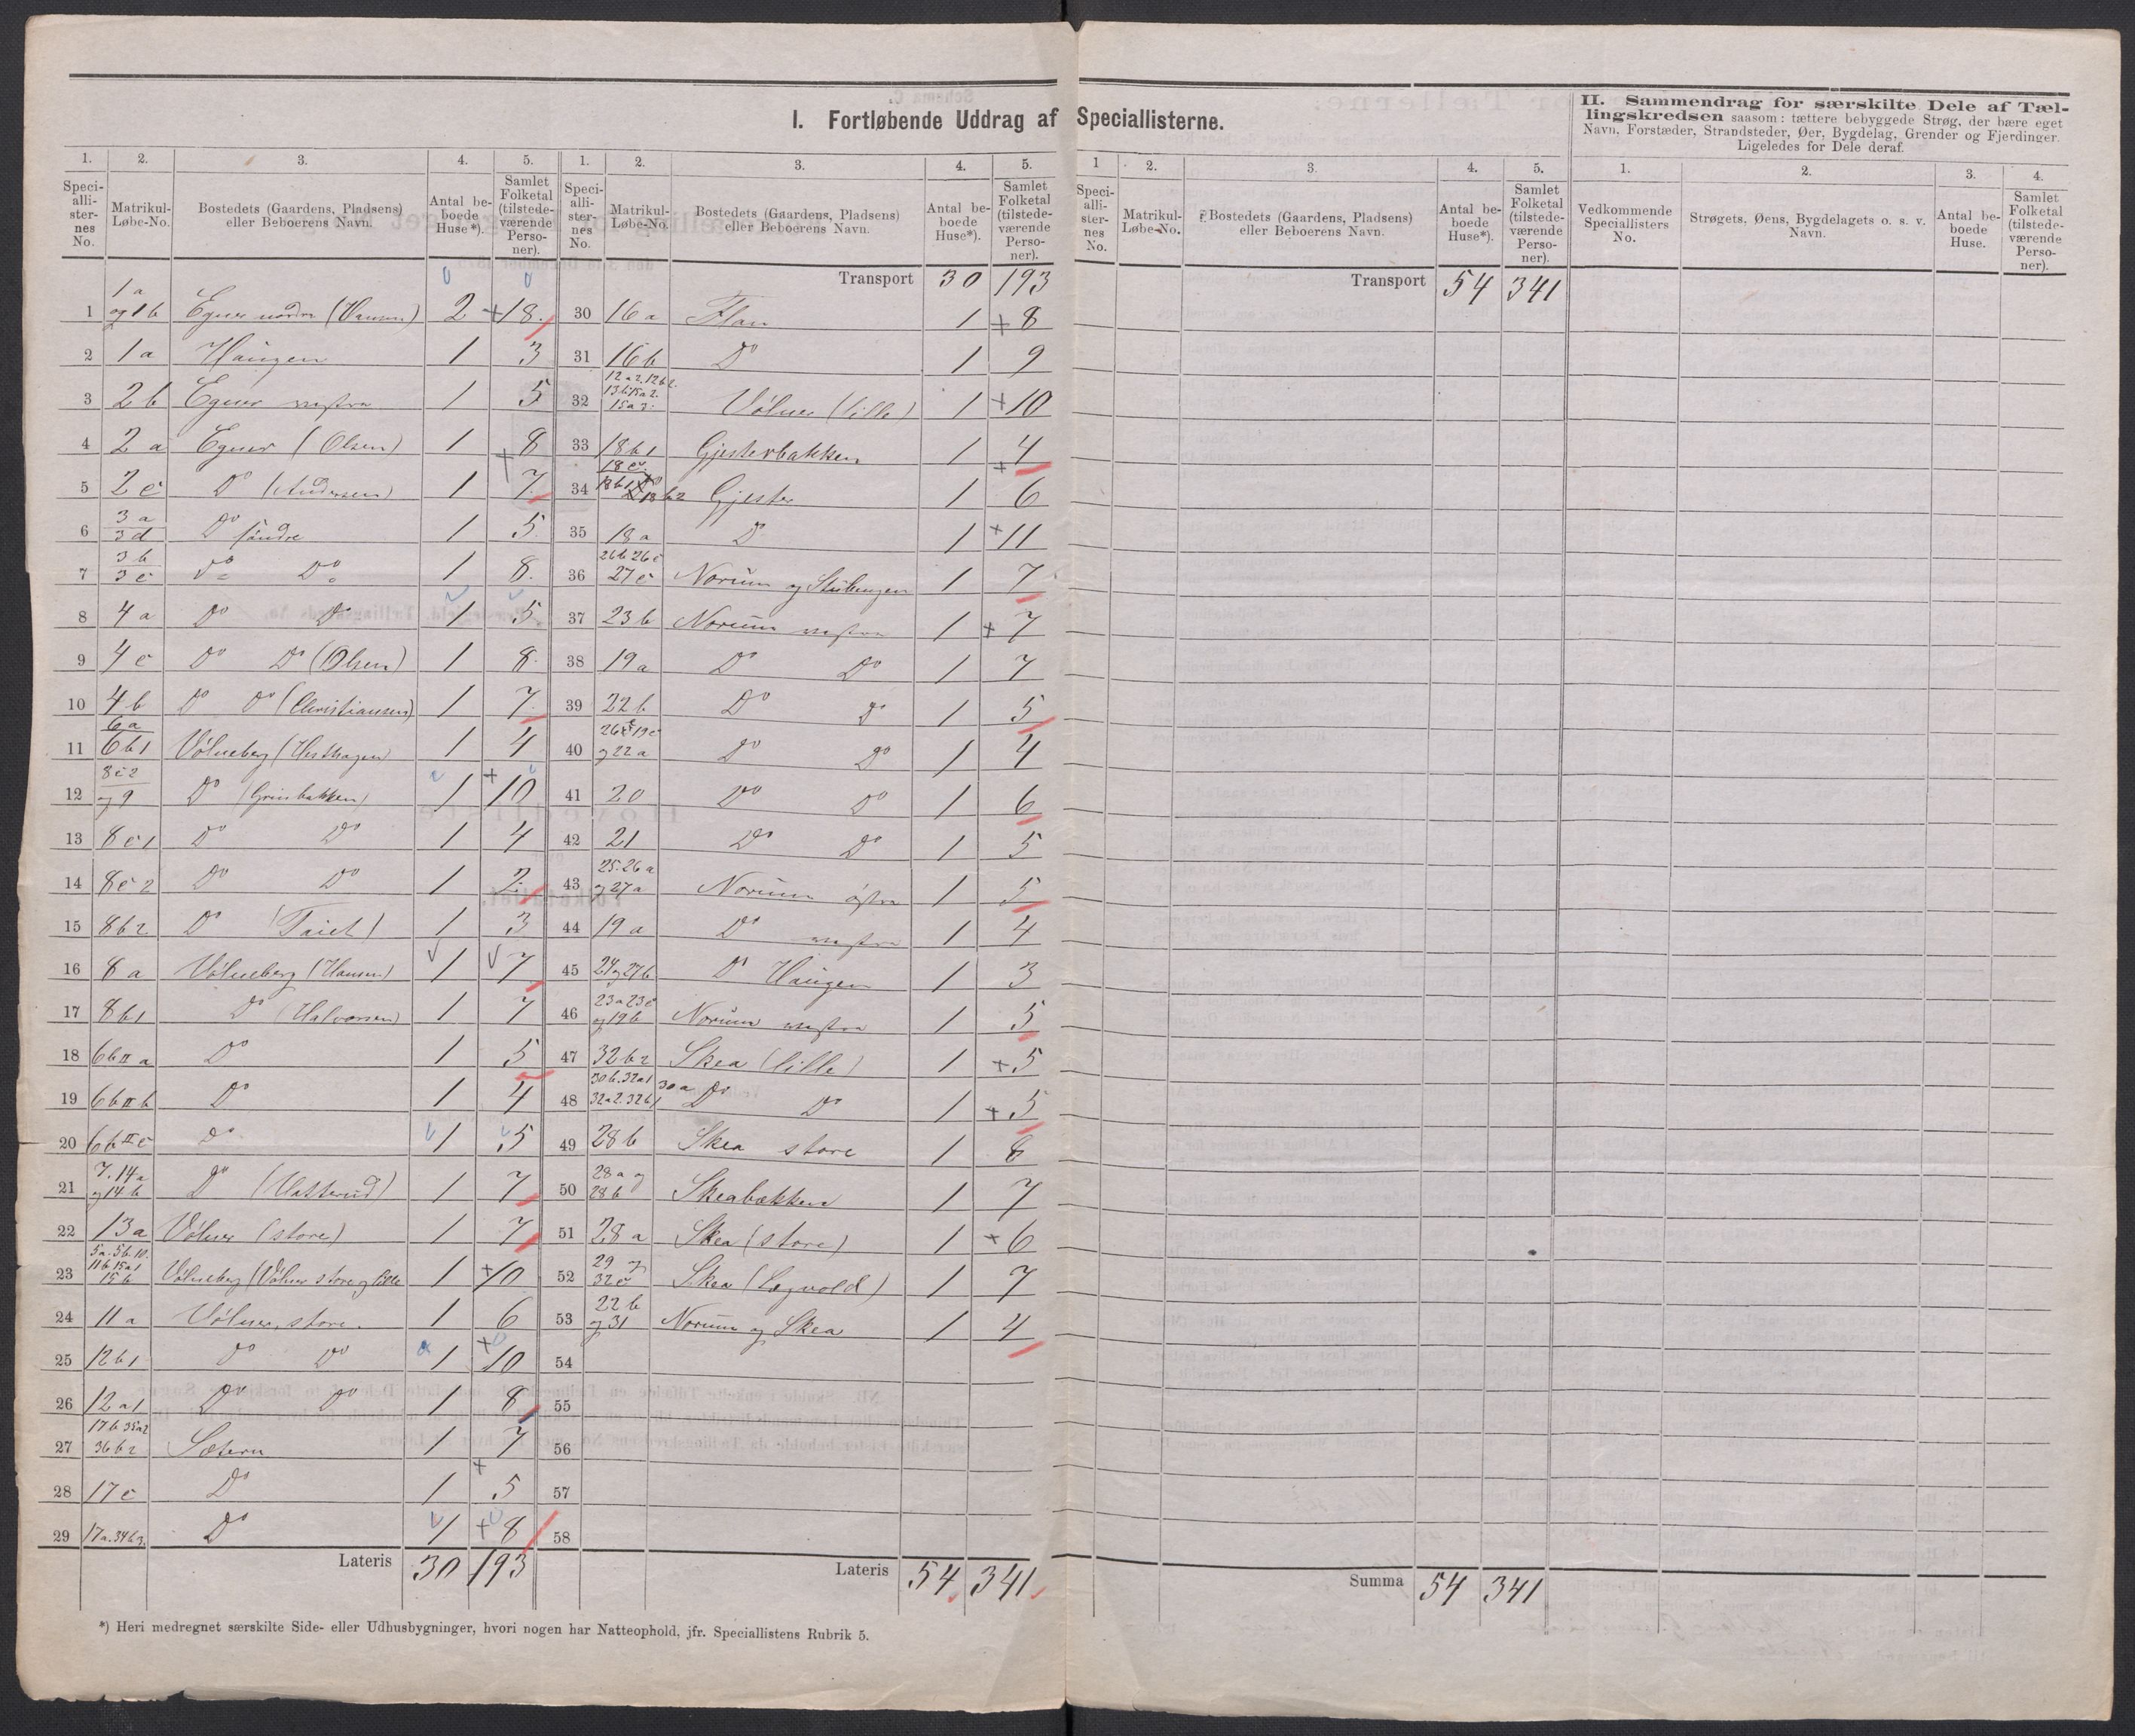 I. Fortløbende Uddrag af Speciallisterne.
II. Sammendrag for særskilte Dele af Tæl-
lingskredsen saasom: tættere bebyggede Strøg, der bære eget
Navn, Forstæder, Strandsteder, Øer, Bygdelag, Grender og Fjerdinger.
Ligeledes for Dele deraf.
1. 2. 3. 4. 5. 1. 2. 3. 4. 5. 1 2. 3. 4. 5. 1. 2. 3. 4.
Speci-alli-ster-nes No. Matrikul-Løbe-No. Bostedets (Gaardens, Pladsens) eller Beboerens Navn. Antal be-boede Huse*). Samlet Folketal (tilstede-værende Perso-ner).
Speci-alli-ster-nes No. Matrikul-Løbe-No. Bostedets (Gaardens, Pladsens) eller Beboerens Navn. Antal be-boede Huse*). Samlet Folketal (tilstede-værende Perso-ner).
Speci-alli-ster-nes No. Matrikul-Løbe-No. Bostedets (Gaardens, Pladsens) eller Beboerens Navn. Antal be-boede Huse*). Samlet Folketal (tilstede-værende Perso-ner).
Vedkommende Speciallisters No. Strøgets, Øens, Bygdelagets o. s. v. Navn. Antal be-boede Huse. Samlet Folketal (tilstede-værende Perso-ner).
1 1a og 1b Egner nordre (Hansen) 2 18.
2 1a Haugen 1 3
3 2b Egner vestre 1 5
4 2a Egner (Olsen) 1 8
5 2c Do (Andersen) 1 7.
6 3a 3d Do søndre 1 5
7 3b 3c Do Do 1 8.
8 4a Do Do 1 5
9 4c Do Do (Olsen) 1 8.
10 4b Do Do (Christiansen) 1 7.
11 6a 6b1 Vølneberg (Hesthagen) 1 4
12 8c2 og 9 Do (Grinibakken) 1 10
13 8c1 Do Do 1 4
14 8c2 Do Do 1 2.
15 8b2 Do 1 3
16 8a Vølneberg (Hansen) 1 7
17 8b1 Do (Halvorsen) 1 7
18 6bIIa Do 1 5
19 6bIIb Do 1 4
20 6bIIc Do 1 5
21 7.14a og 14b Do (Hatterud) 1 7
22 13a Vølner (store) 1 7
23 5a.5b.10. 11b 15a1 15b Vølneberg (Vølner store og lille 1 10
24 11a Vølner, store. 1 6
25 12b1 Do Do 1 10
26 12a1 Do Do 1 8
27 17b 35a2 36b2 Sætern 1 7
28 17c Do 1 5
29 17a.34b3. Do 1 8
Lateris 30 193
Transport 30 193
30 16a Flan 1 8
31 16b Do 1 9
32 12a2.12b2. 13b.15a2. 15a3. Vølner (lille) 1 10
33 18b1 Gjesterbakken 1 4
34 18c. 18b2 Gjester 1 6
35 18a Do 1 11
36 26b 26c 27c Norum og Stubengen 1 7
37 23b Norum vestre 1 7
38 19a Do Do 1 7
39 22b Do Do 1 5
40 19c og 22a Do Do 1 4
41 20 Do Do 1 6
42 21 Do Do 1 5
43 25.26a og 27a Norum østre 1 5
44 19a Do vestre 1 4
45 24 og 27b Do Haugen 1 3
46 23a 23c og 19b Norum vestre 1 5
47 32b2 Skea (lille) 1 5
48 30b.32a1 30a 32a2.32b1 Do Do 1 5
49 28b Skea store 1 6
50 28a og 28b Skeabakken 1 7
51 28a Skea (store) 1 6
52 29 og 32c Skea (Legvold) 1 7
53 22b og 31 Norum og Skea 1 4
54
55
56
57
58
Lateris 54 341
Transport 54 341
Summa 54 341
*) Heri medregnet særskilte Side- eller Udhusbygninger, hvori nogen har Natteophold, jfr. Speciallistens Rubrik 5.